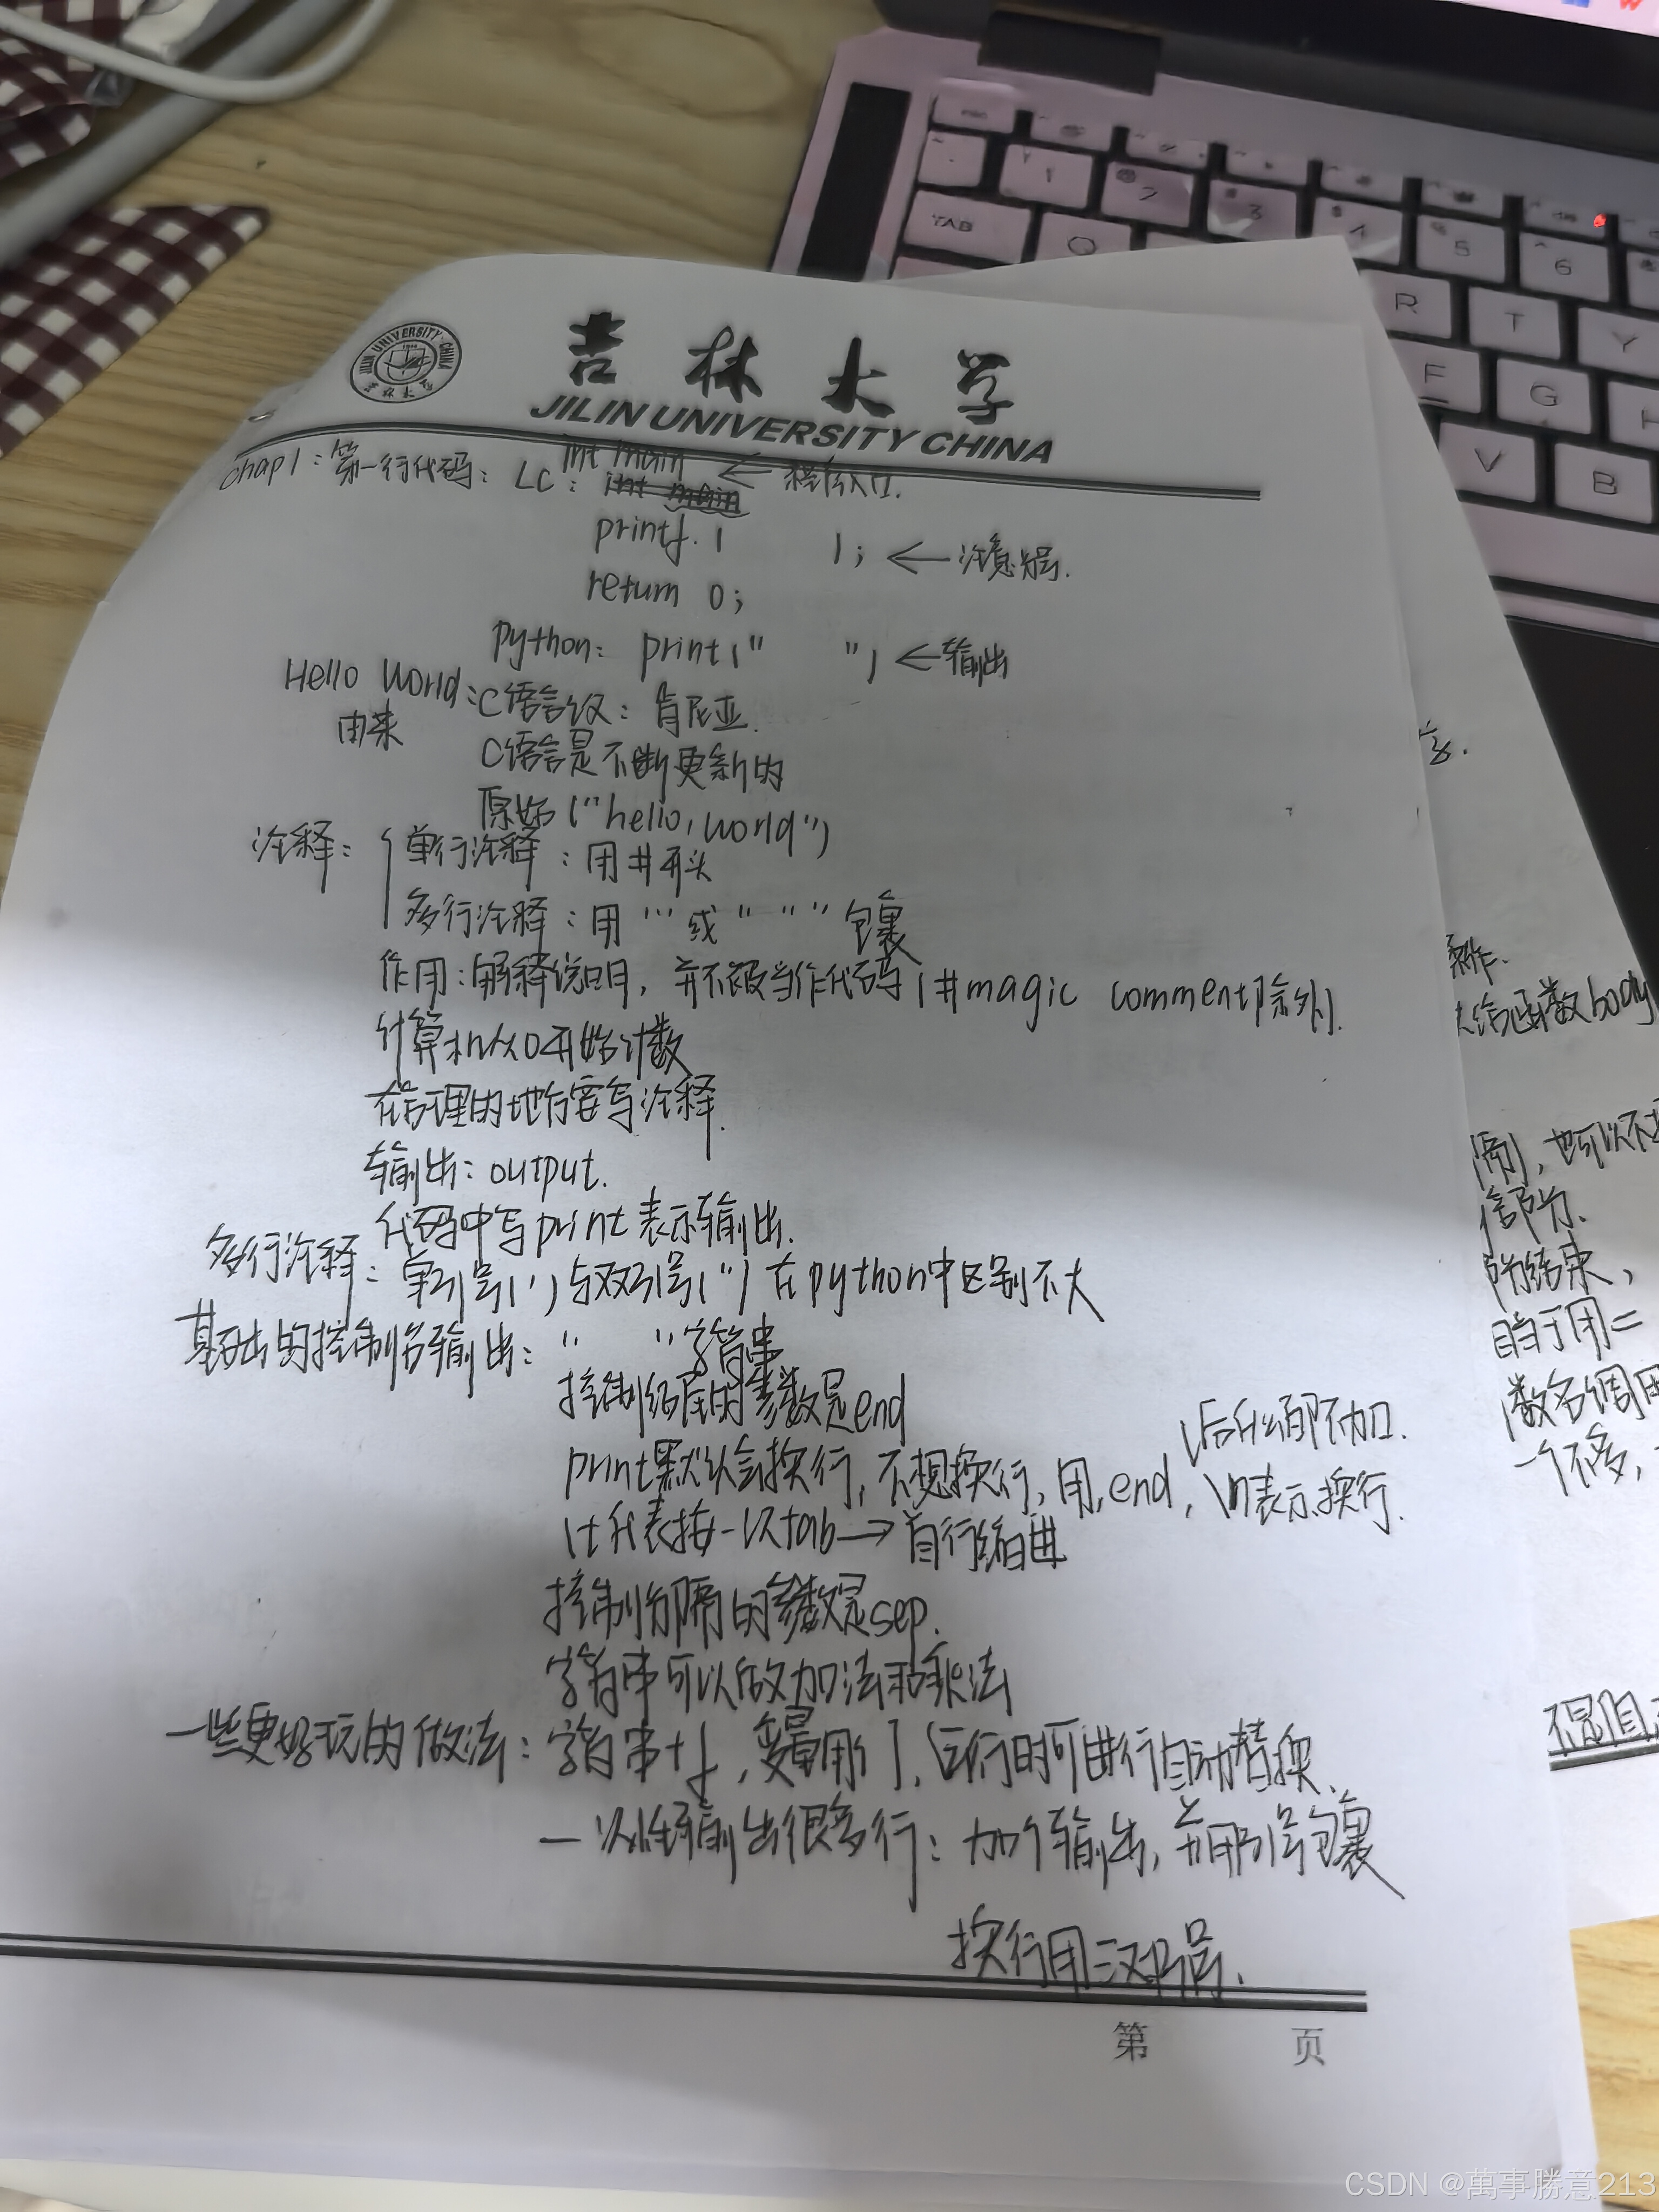 吉林大学
JILIN UNIVERSITY CHINA
chap1：第一行代码：LC：int main ← 程序入口.
printf.( ); ← 注意分号.
return 0;
python：print(" ") ← 输出
Hello World：C语言之父：肯尼亚.
由来
C语言是不断更新的
原始("hello,world")
注释：{单行注释：用#开头
多行注释：用'''或"""包裹
作用：解释说明，并不被当作代码(#magic comment除外).
计算机从0开始计数
在合理的地方要写注释.
输出：output.
代码中写print表示输出.
多行注释：单引号(')与双引号(")在python中区别不大
基础的控制台输出：" "字符串
控制结尾的参数是end
(后什么都不加).
print默认会换行，不想换行，用,end，\n表示换行.
\t代表按一次tab→首行缩进
控制分隔的参数是sep.
字符串可以做加法和乘法
一些更好玩的做法：字符串+f，变量用{ }，运行时可进行自动替换.
一次性输出很多行：加个输出，并用引号包裹
换行用三双引号.
第 页
条件.
函数body
也可以不
部分.
结束，
数名调用
一个不多，
TAB
Q
R
T
Y
F
G
H
V
B
1
2
3
4
5
6
CSDN @萬事勝意213